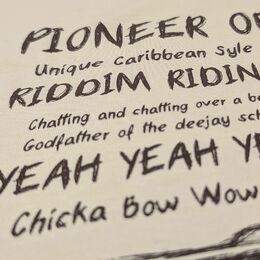 PIONEER OF
Unique Caribbean Syle
RIDDIM RIDIN
Chatting and chatting over a be
Godfather of the deejay sch
YEAH YEAH YE
Chicka Bow Wow